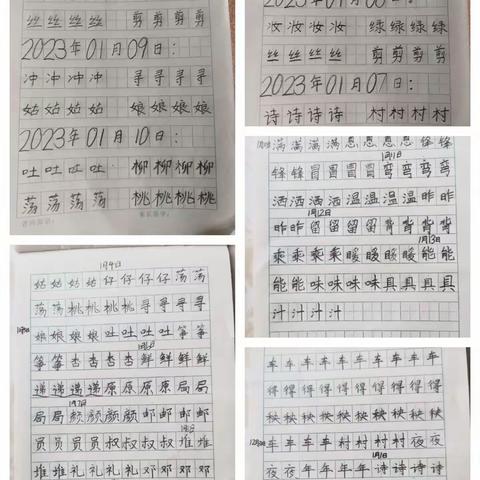 丝 丝 丝 丝 剪 剪 剪 剪
2023年01月09日:
冲 冲 冲 冲 寻 寻 寻 寻
姑 姑 姑 姑 娘 娘 娘 娘
2023年01月10日:
吐 吐 吐 吐 柳 柳 柳 柳
荡 荡 荡 荡 桃 桃 桃 桃
汝 汝 汝 汝 绿 绿 绿 绿
丝 丝 丝 丝 剪 剪 剪 剪
2023年01月07日:
诗 诗 诗 诗 村 村 村 村
满 满 满 满 恩 恩 恩 恩 锋 锋
1月11日
锋 锋 冒 冒 冒 冒 弯 弯 弯 弯
洒 洒 洒 洒 温 温 温 温 昨 昨
1月12日
昨 昨 留 留 留 留 背 背 背 背
1月13日
乘 乘 乘 乘 暖 暖 暖 暖 能 能
能 能 味 味 味 味 具 具 具 具
汁 汁 汁 汁
1月4日
姑 姑 姑 姑 仔 仔 仔 仔 荡 荡
荡 荡 桃 桃 桃 桃 寻 寻 寻 寻
娘 娘 娘 娘 吐 吐 吐 吐 筝 筝
筝 筝 杏 杏 杏 杏 鲜 鲜 鲜 鲜
递 递 递 递 原 原 原 原 局 局
1月7日
局 局 颜 颜 颜 颜 邮 邮 邮 邮
员 员 员 员 叔 叔 叔 叔 堆 堆
堆 堆 礼 礼 礼 礼 邓 邓 邓 邓
车 车 车 车 车 车 车 车 车 车
得 得 得 得 得 得 得 得 得 得
秧 秧 秧 秧 秧 秧 秧 秧 秧 秧
车 车 车 车 村 村 村 村 夜 夜
1月1日
夜 夜 年 年 年 年 诗 诗 诗 诗